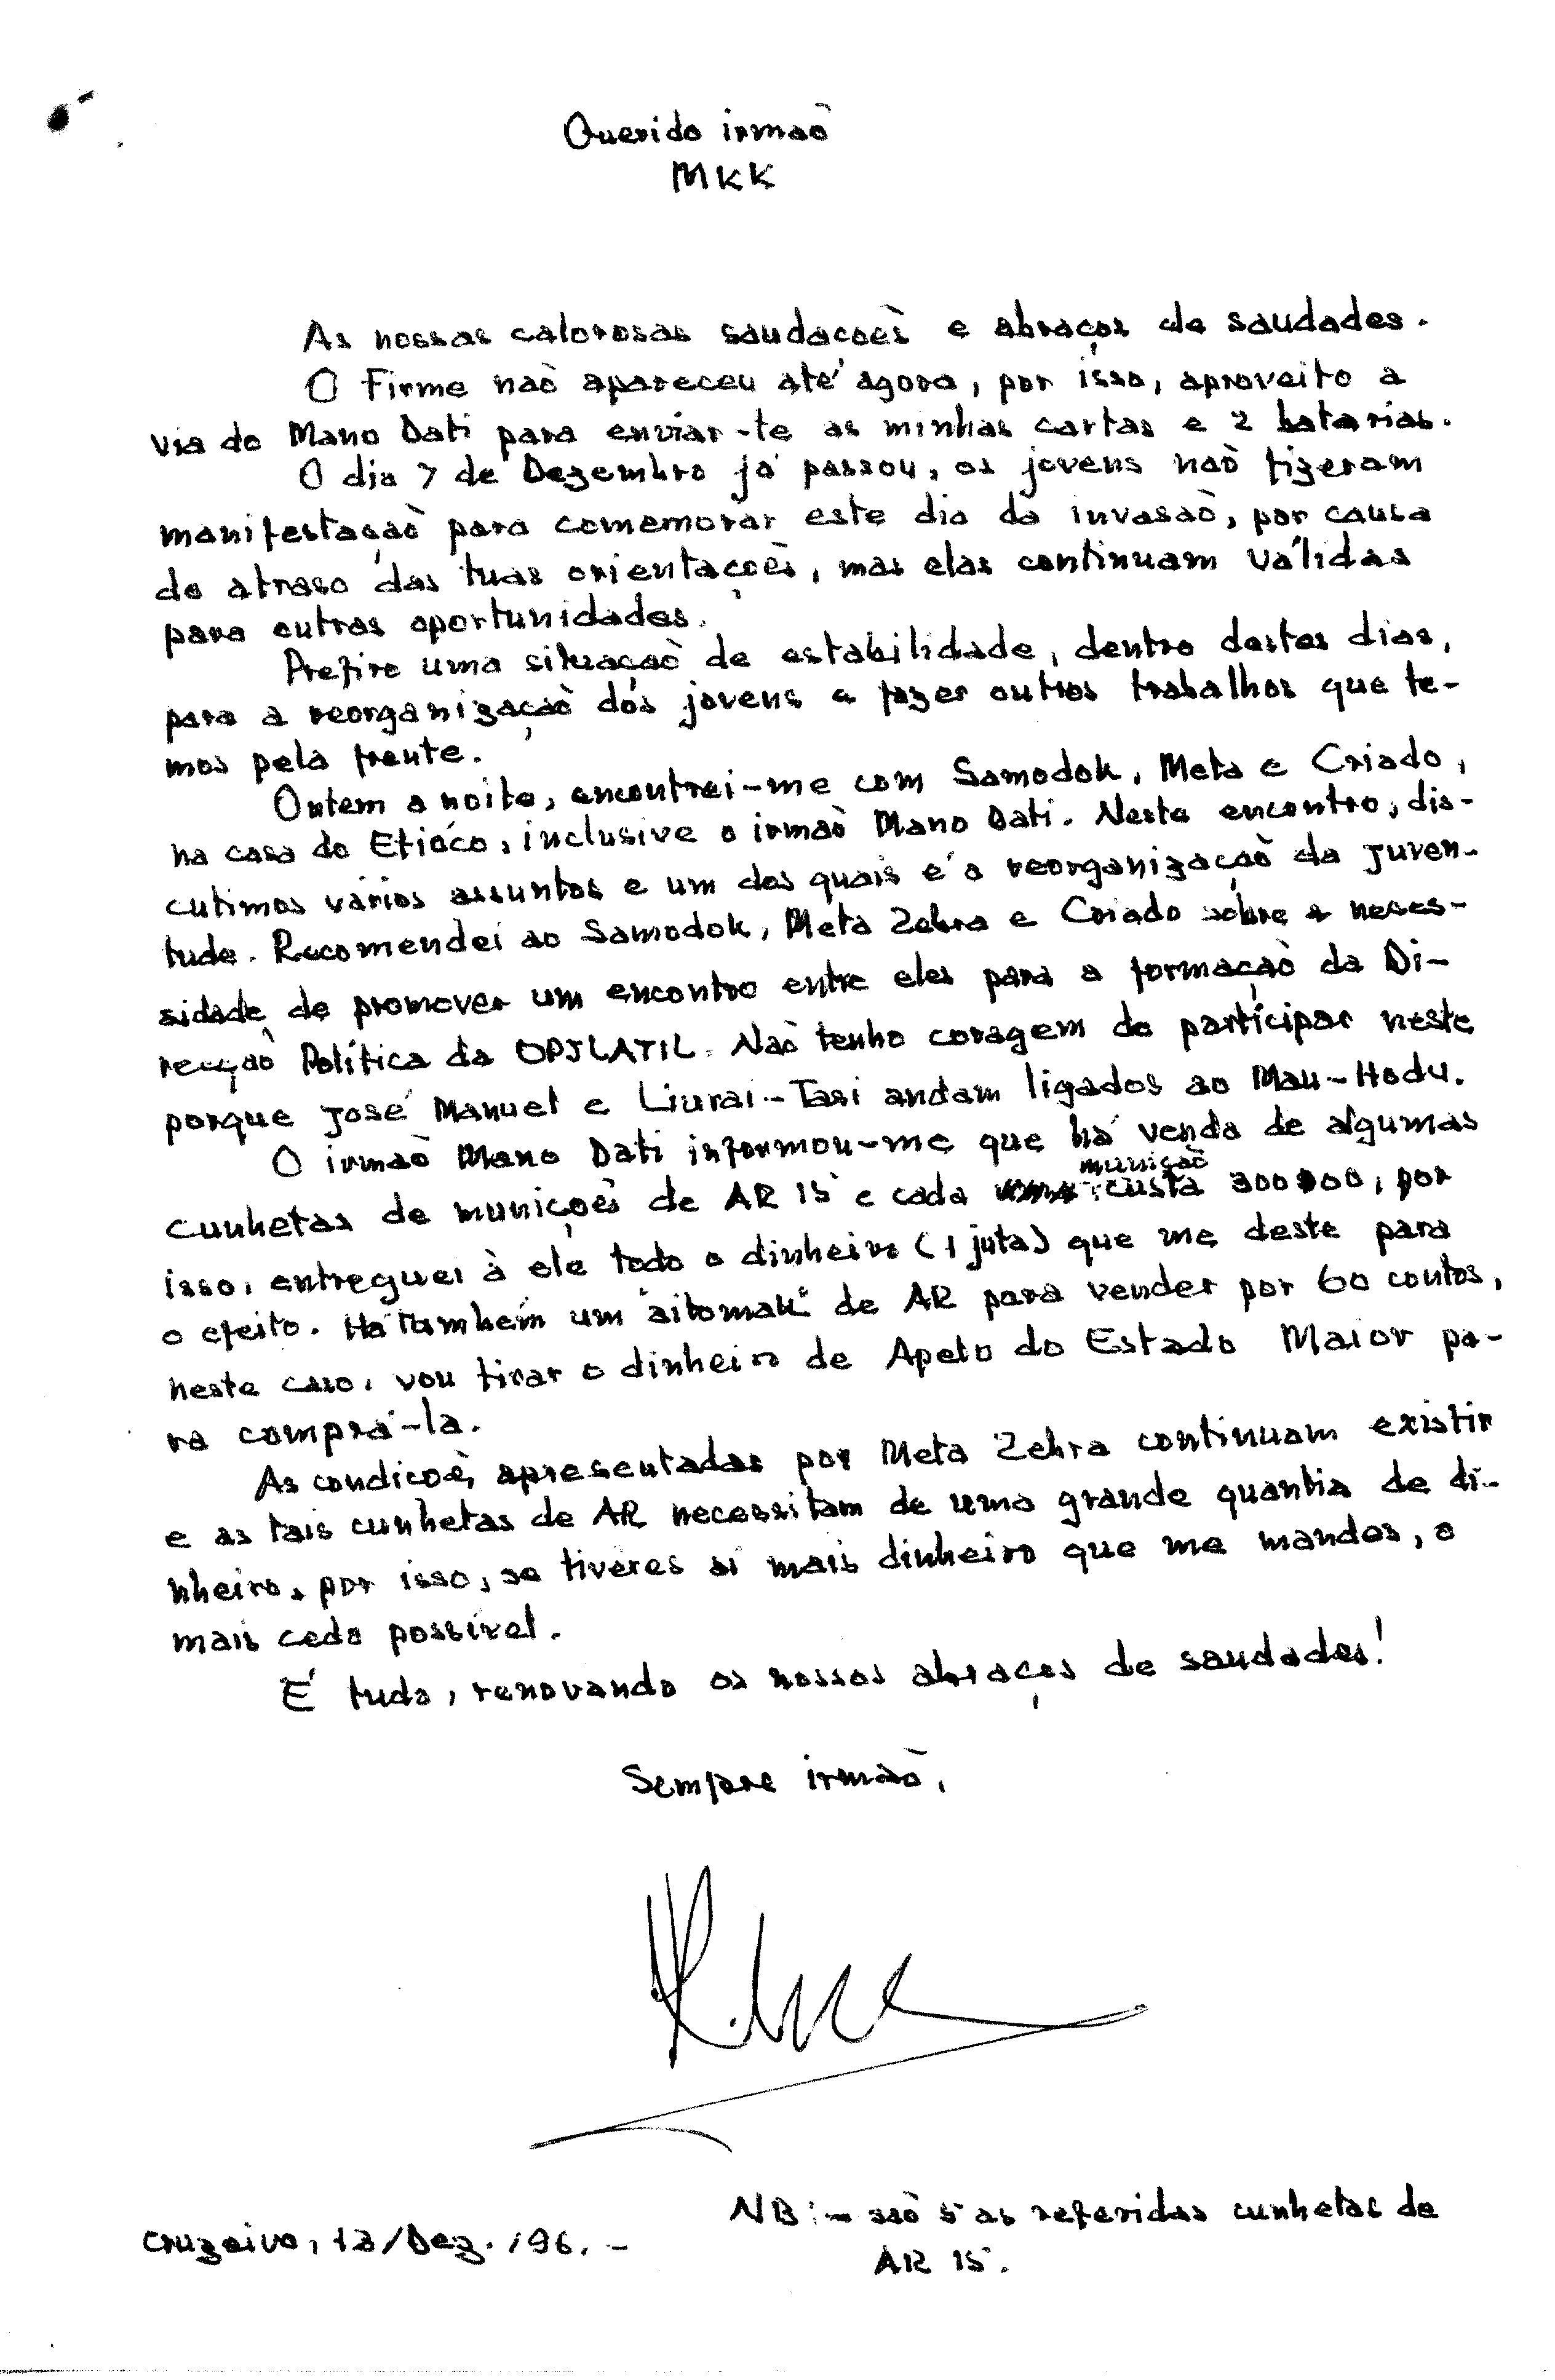 Querido irmaò
MKK
As nossas calorosas saudacoès e abraços de saudades.
O Firme naò apareceu até agora, por isso, aproveito a
via do Mano Dati para enviar-te as minhas cartas e 2 batarias.
O dia 7 de Dezembro já passou, os jovens naò fizeram
manifestaçaò para comemorar este dia da invasaò, por causa
do atraso das tuas orientaçoès, mas elas continuam válidas
para outras oportunidades.
Prefiro uma situaçaò de estabilidade, dentro destes dias,
para a reorganizaçaò dos jovens e fazer outros trabalhos que te-
mos pela frente.
Ontem a noite, encontrei-me com Samodok, Meta e Criado,
na casa do Etióco, inclusive o irmaò Mano Dati. Neste encontro, dis-
cutimos vários assuntos e um dos quais é a reorganizaçaò da juven-
tude. Recomendei ao Samodok, Meta Zebra e Criado sôbre a neces-
sidade de promover um encontro entre eles para a formaçaò da Di-
recçaò Política da OPJLATIL. Naò tenho coragem de participar neste
porque José Manuel e Liurai-Tasi andam ligados ao Mau-Hodu.
O irmaò Mano Dati informou-me que há venda de algumas
cunhetas de muniçoès de AR 15 e cada muniçaò custa 300$00, por
isso, entreguei à ele todo o dinheiro (1 juta) que me deste para
o efeito. Há também um "aitomak" de AR para vender por 60 contos,
neste caso, vou tirar o dinheiro de Apelo do Estado Maior pa-
ra comprá-la.
As condicoès apresentadas por Meta Zebra continuam existir
e as tais cunhetas de AR necessitam de uma grande quantia de di-
nheiro, por isso, se tiveres aí mais dinheiro que me mandes, o
mais cedo possível.
É tudo, renovando os nossos abraços de saudades!
Sempre irmaò,
NB:- saò 5 as referidas cunhetas de
Cruzeiro, 12/Dez./96.-
AR 15.